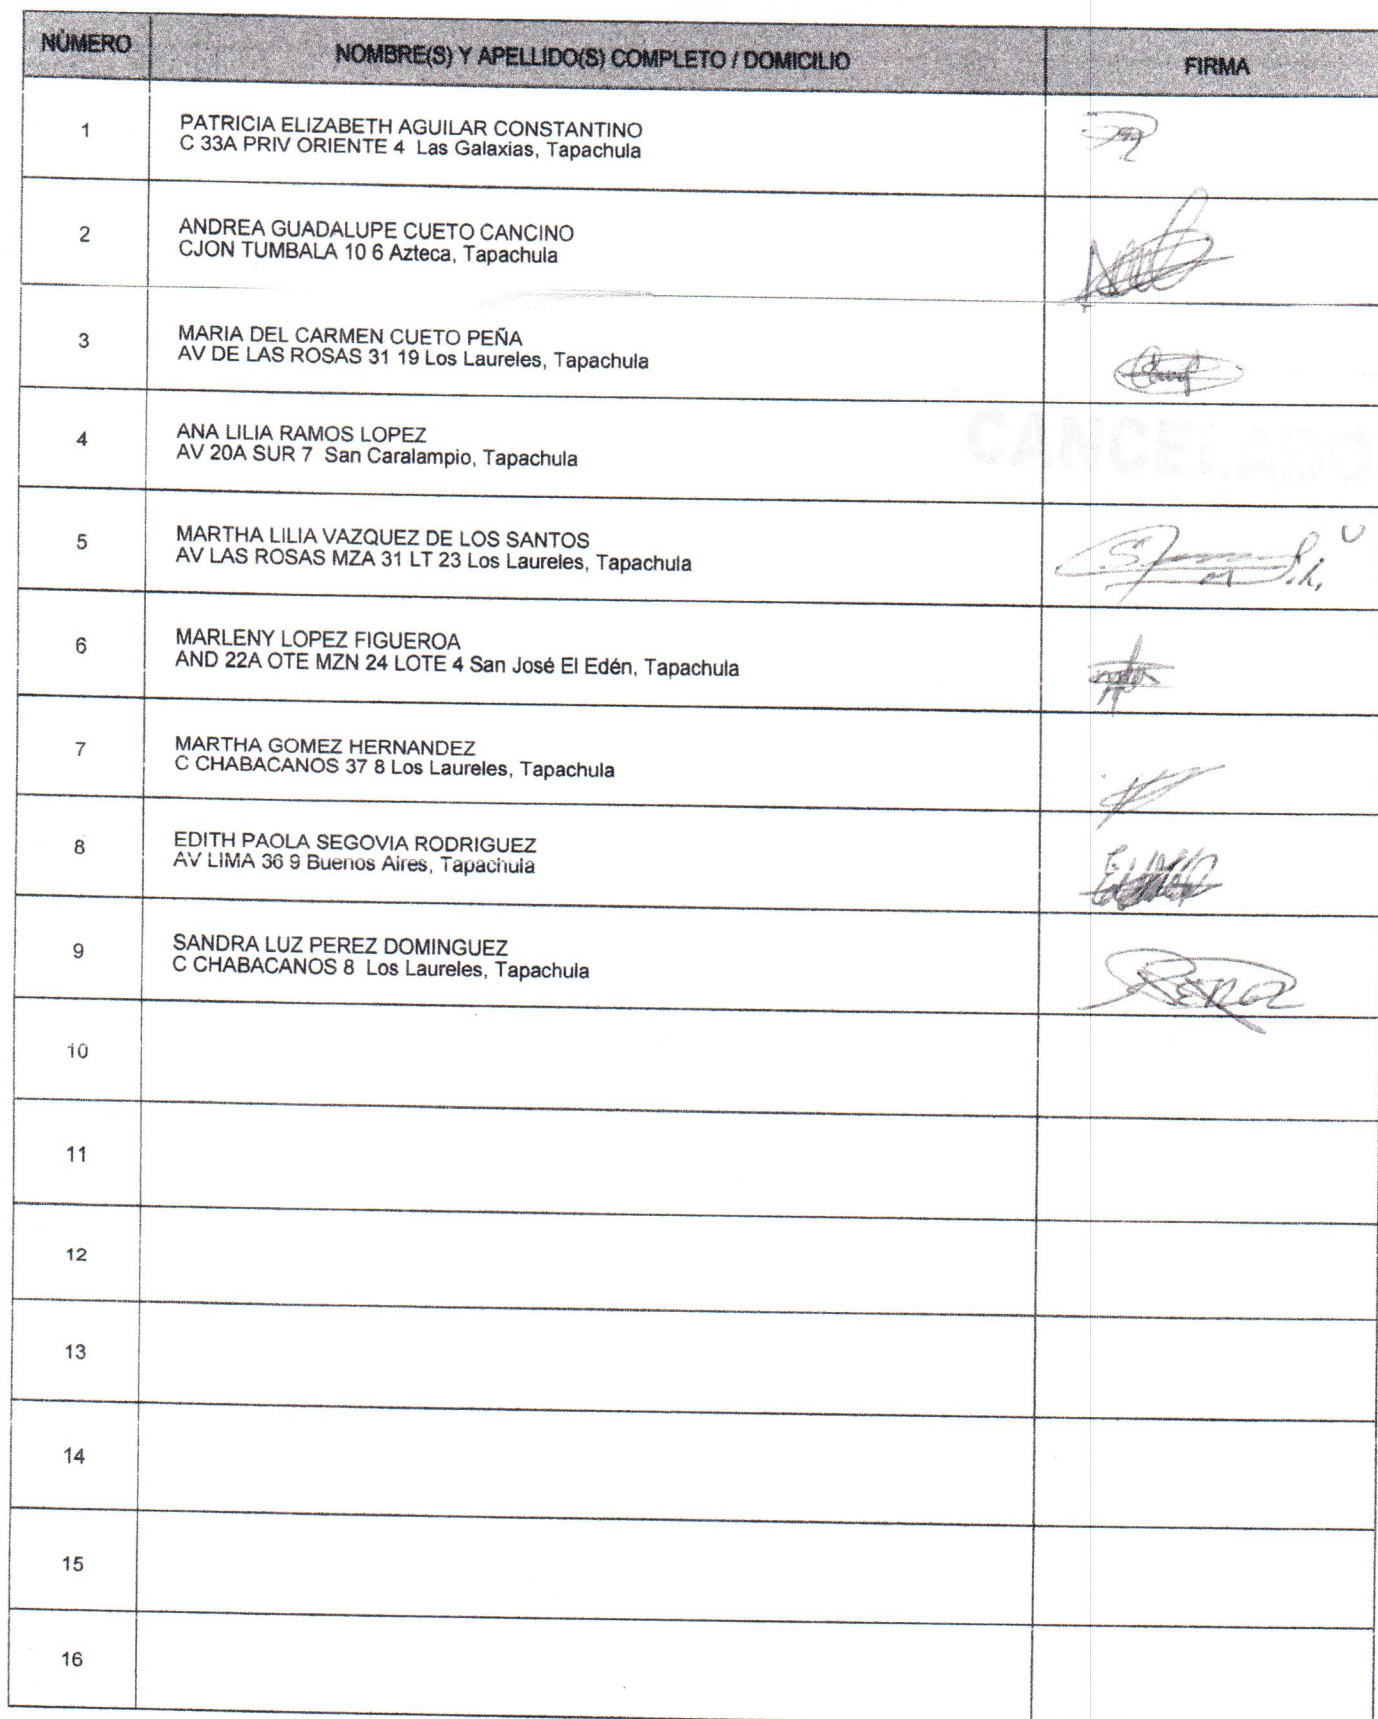 NÚMERO NOMBRE(S) Y APELLIDO(S) COMPLETO / DOMICILIO FIRMA
1 PATRICIA ELIZABETH AGUILAR CONSTANTINO
C 33A PRIV ORIENTE 4 Las Galaxias, Tapachula
2 ANDREA GUADALUPE CUETO CANCINO
CJON TUMBALA 10 6 Azteca, Tapachula
3 MARIA DEL CARMEN CUETO PEÑA
AV DE LAS ROSAS 31 19 Los Laureles, Tapachula
4 ANA LILIA RAMOS LOPEZ
AV 20A SUR 7 San Caralampio, Tapachula
CANCELADO
5 MARTHA LILIA VAZQUEZ DE LOS SANTOS
AV LAS ROSAS MZA 31 LT 23 Los Laureles, Tapachula
6 MARLENY LOPEZ FIGUEROA
AND 22A OTE MZN 24 LOTE 4 San José El Edén, Tapachula
7 MARTHA GOMEZ HERNANDEZ
C CHABACANOS 37 8 Los Laureles, Tapachula
8 EDITH PAOLA SEGOVIA RODRIGUEZ
AV LIMA 36 9 Buenos Aires, Tapachula
9 SANDRA LUZ PEREZ DOMINGUEZ
C CHABACANOS 8 Los Laureles, Tapachula
10
11
12
13
14
15
16